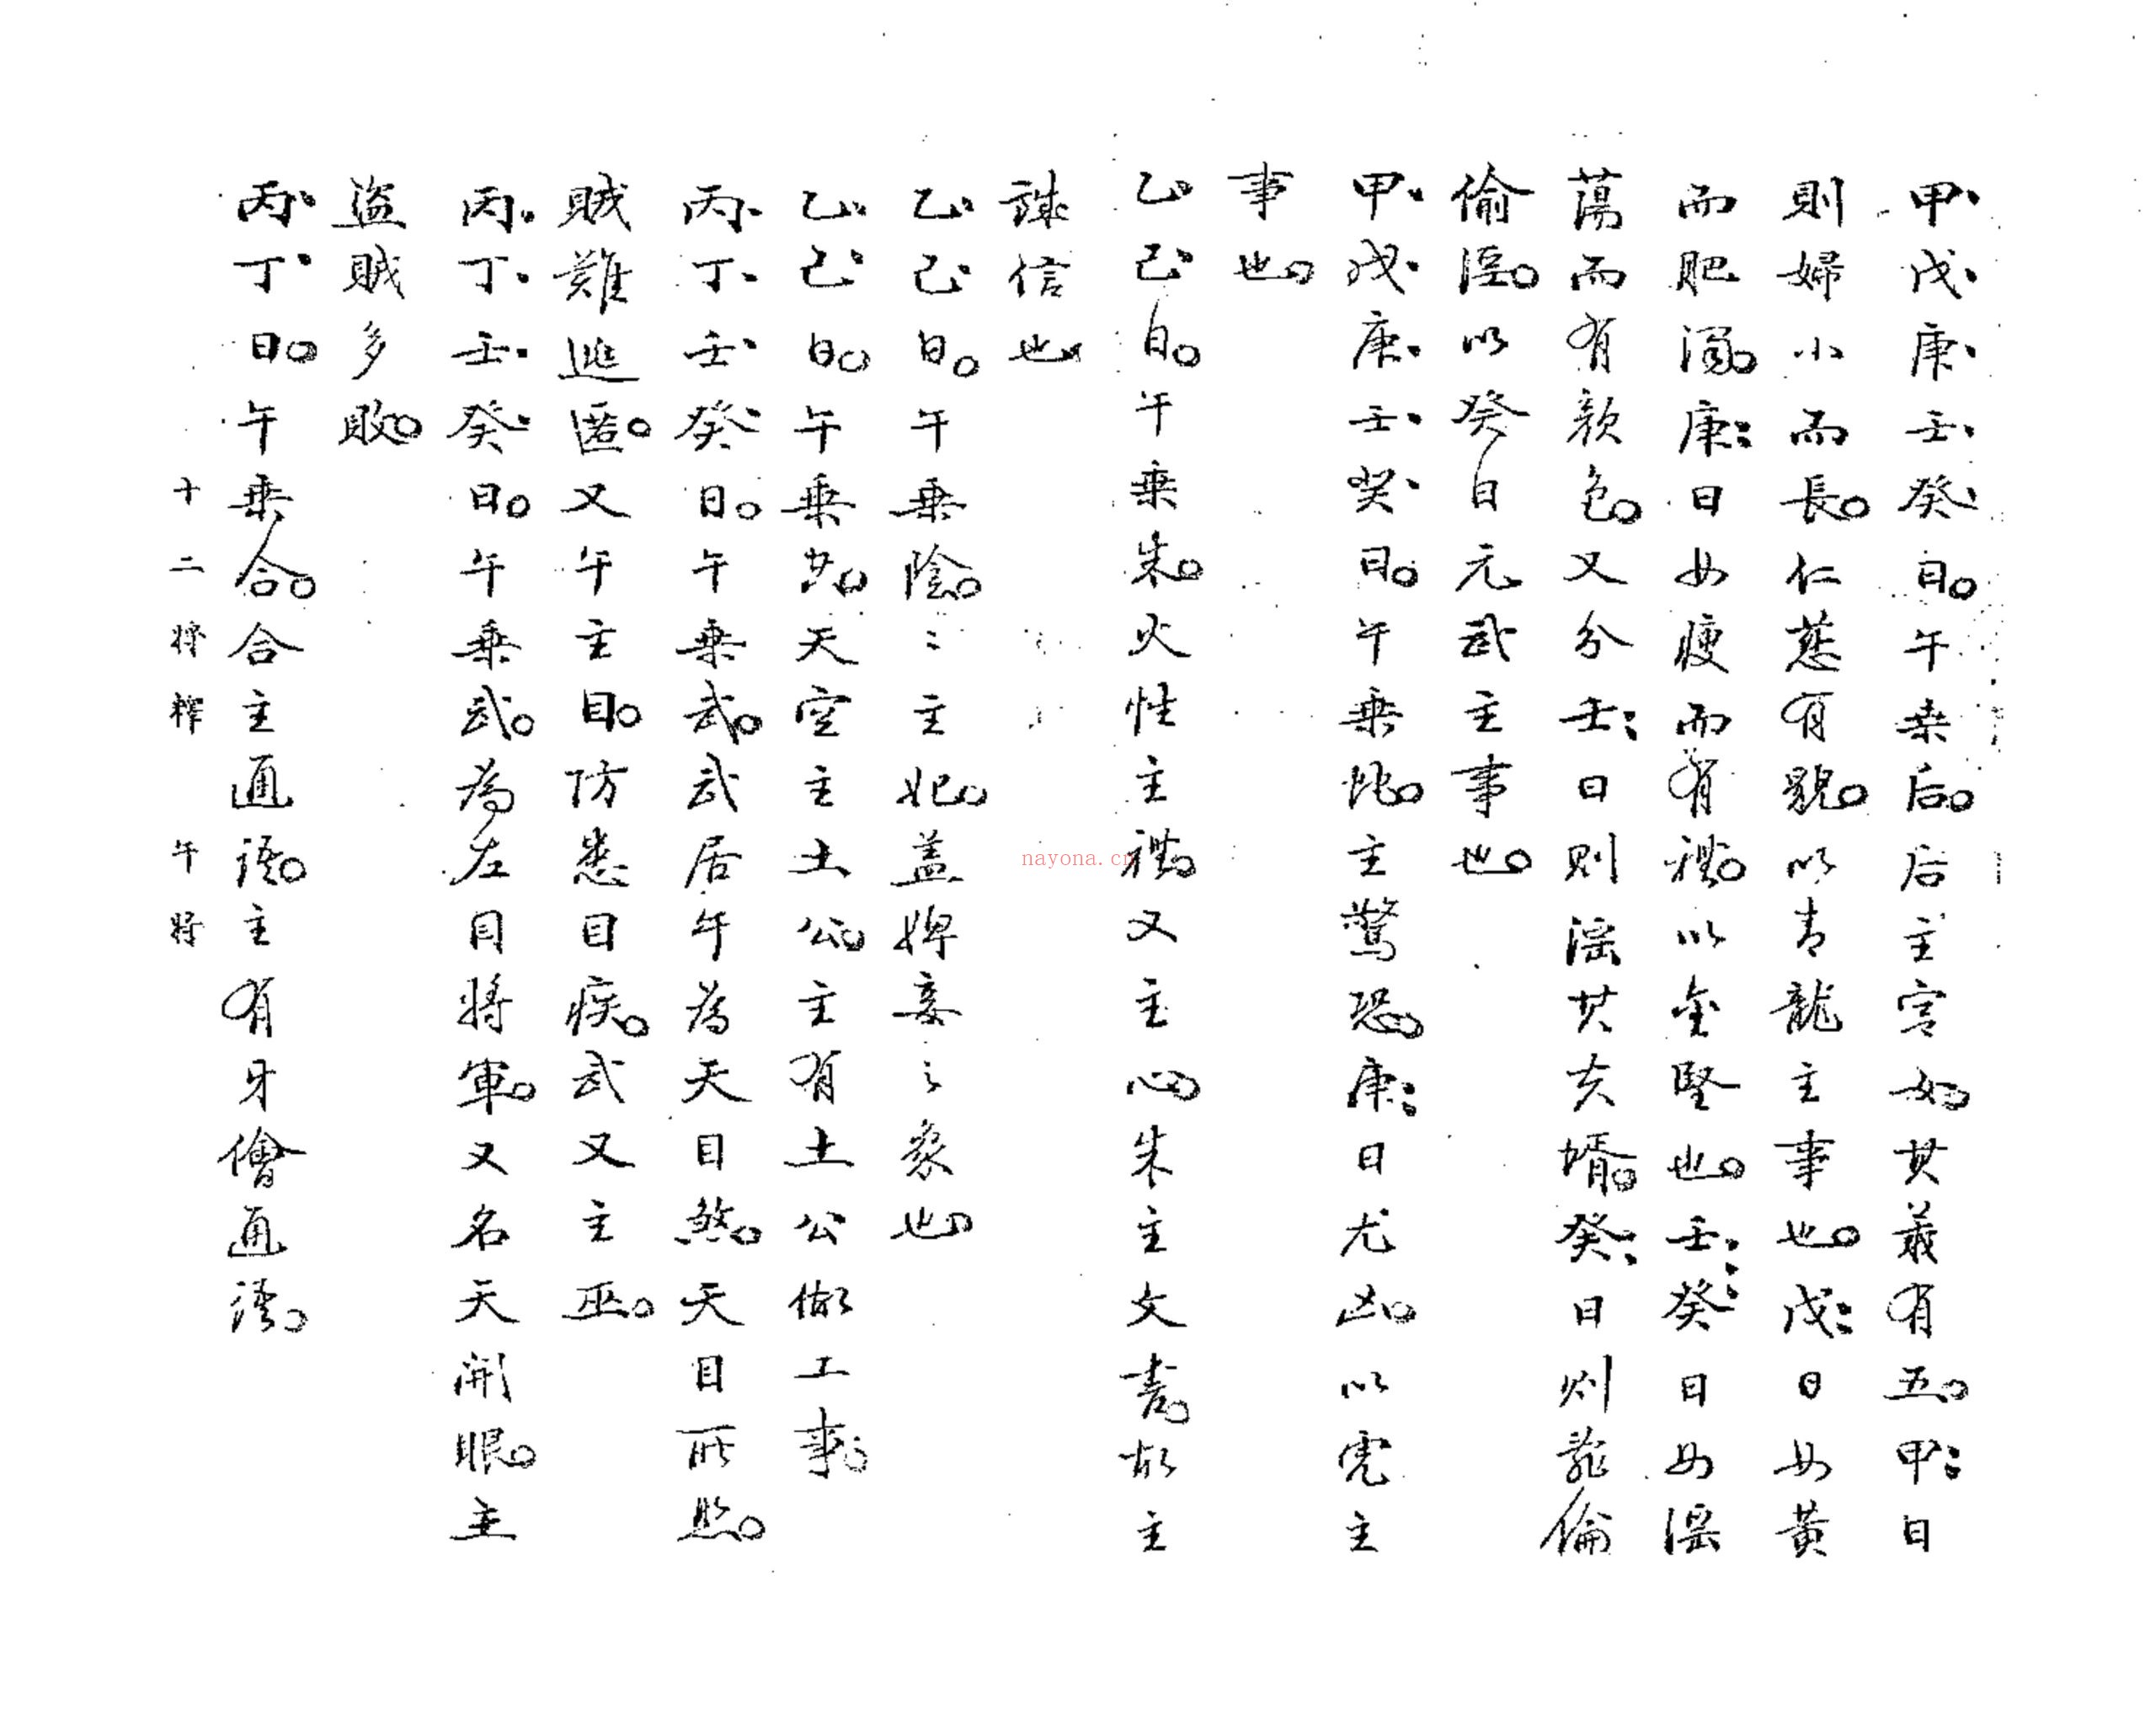 甲戊庚壬癸日。午乗后。后主宫女。其義有五。甲日
則婦小而長。仁慈有貌。以青龍主事也。戊日女黃
而肥濁。庚日女瘦而有禮。以金堅也。壬癸日女淫
蕩而有顏色。又分壬日則淫其夫婿。癸日則亂倫
偷淫。以癸日元武主事也。
甲戊庚壬癸日。午乗虎。主驚恐。庚日尤凶。以虎主
事也。
乙己日。午乗朱。火性主禮。又主心。朱主文書。故主
誅信也
乙己日。午乗陰。陰主妃。蓋婢妾之象也。
乙己日。午乗空。天空主土公。主有土公做工事。
丙丁壬癸日。午乗武。武居午為天目煞。天目所照。
賊難逃匿。又午主目。防患目疾。武又主巫。
丙丁壬癸日。午乗武。為左目將軍。又名天開眼。主
盗賊多敗。
丙丁日。午乗合。合主通語。主有牙儈通語。
十二將釋 午將
nayona.cn